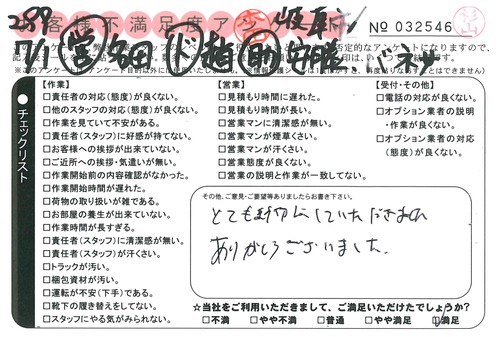 お客様不満足度アン
No 032546
【作業】
□責任者の対応(態度)が良くない。
□他のスタッフの対応(態度)が良くない。
□作業を見ていて不安がある。
□責任者(スタッフ)に好感が持てない。
□お客様への挨拶が出来ていない。
□ご近所への挨拶・気遣いが無い。
□作業開始前の内容確認がなかった。
□作業開始時間が遅れた。
□荷物の取り扱いが雑である。
□お部屋の養生が出来ていない。
□作業時間が長すぎる。
□責任者(スタッフ)に清潔感が無い。
□責任者(スタッフ)が汗くさい。
□トラックが汚い。
□梱包資材が汚い。
□運転が不安(下手)である。
□靴下の履き替えをしてない。
□スタッフにやる気がみられない。
【営業】
□見積もり時間に遅れた。
□見積もり時間が長い。
□営業マンに清潔感が無い。
□営業マンが煙草くさい。
□営業マンが汗くさい。
□営業態度が良くない。
□営業の説明と作業が一致してない。
【受付・その他】
□電話の対応が良くない。
□オプション業者の説明
・作業が良くない。
□オプション業者の対応
(態度)が良くない。
●チェックリスト
その他、ご意見・ご要望等ありましたらお書き下さい。
とても親切にしていただきました
ありがとうございました。
☆当社をご利用いただきまして、ご満足いただけたでしょうか?
□不満 □やや不満 □普通 □やや満足 □満足